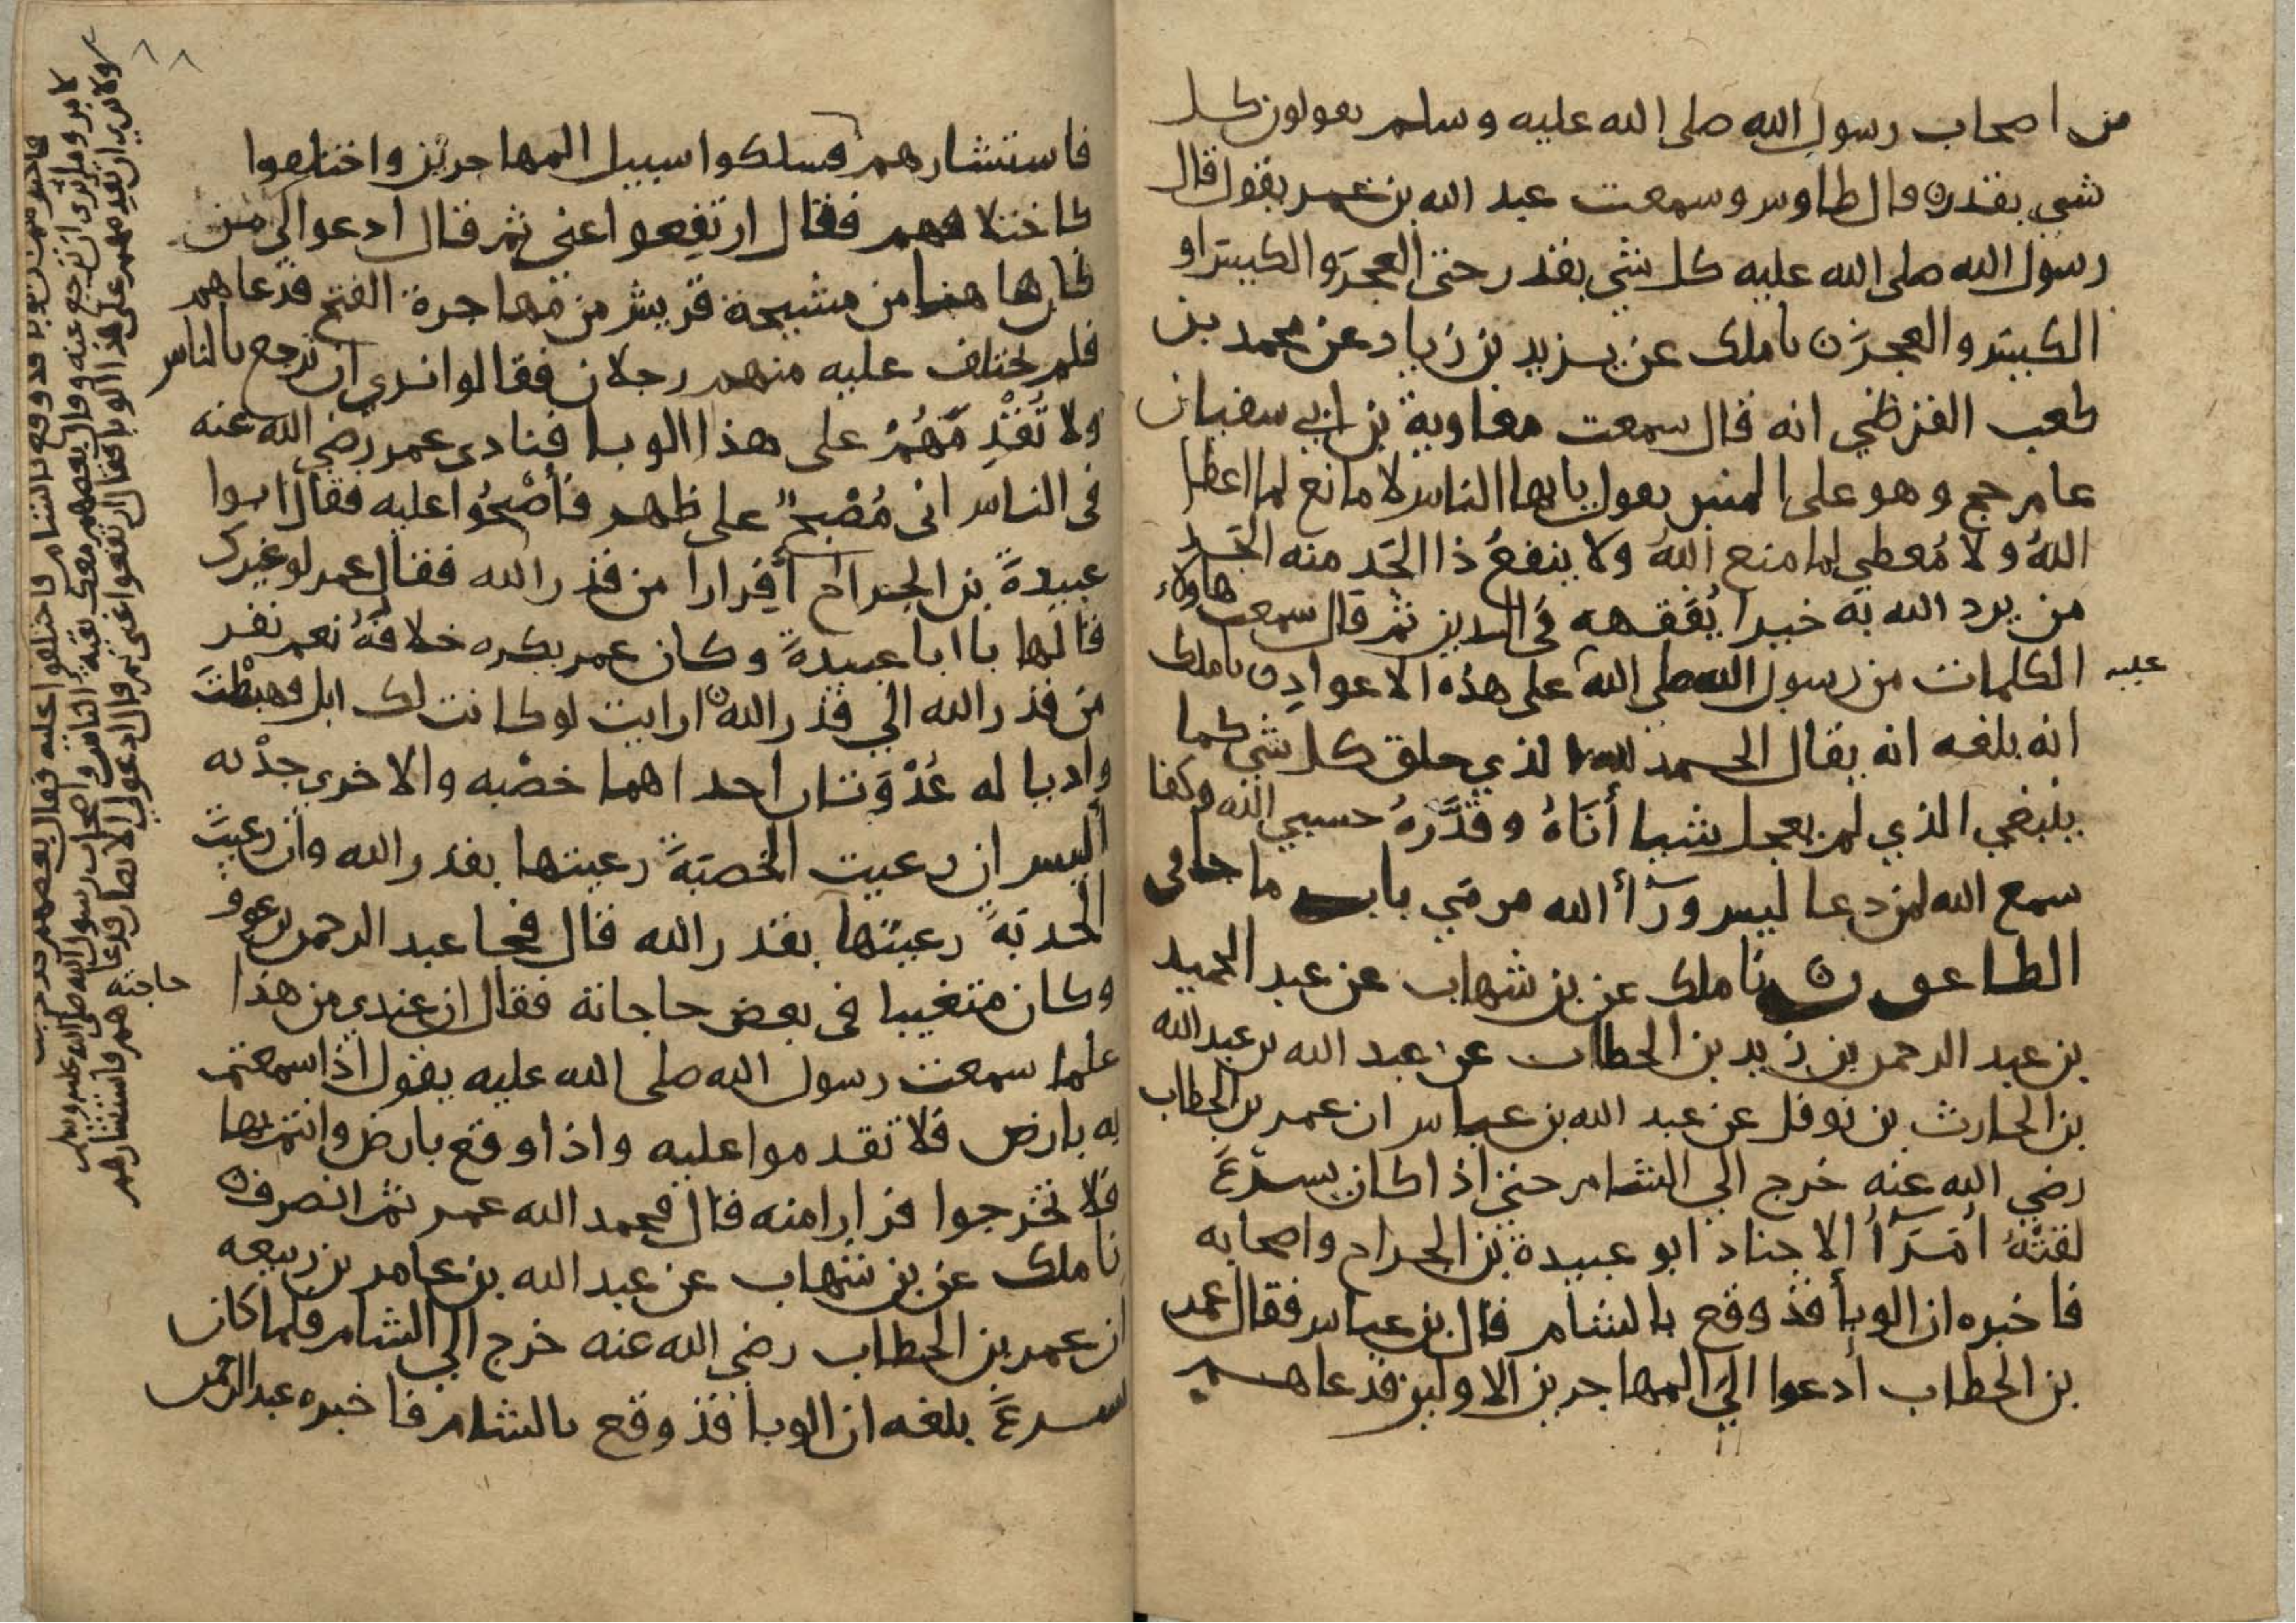 من اصحاب رسول الله صلى الله عليه وسلم يقولون كل
شي بقدر قال طاوس وسمعت عبد الله بن عمر يقول قال
رسول الله صلى الله عليه كل شي بقدر حتى العجز والكيس او
الكيس والعجز نا ملك عن يزيد بن زياد عن محمد بن
كعب القرظي انه قال سمعت معاوية بن ابي سفيان
عام حج وهو على المنبر يقول يايها الناس لا مانع لما اعطا
اللهُ ولا مُعطي لما منع اللهُ ولا ينفعُ ذا الجَد منه الجَد
من يرد الله به خيرا يُفَقهه في الدين ثم قال سمعت هاولاء
الكلمات من رسول الله صلى الله عليه على هذه الاعواد نا ملك
انه بلغه انه يقال الحمد لله الذي خلق كل شي كما
ينبغي الذي لم يعجل شيا أَنَاهُ وقَدَّرهُ حسبي الله وكفا
سمع الله لمن دعا ليس ورآأ الله مرمَي باب ما جا في
الطاعون نا ملك عن بن شهاب عن عبد الحميد
بن عبد الرحمن بن زيد بن الخطاب عن عبد الله بن عبد الله
بن الحارث بن نوفل عن عبد الله بن عباس ان عمر بن الخطاب
رضي الله عنه خرج الي الشام حتى اذا كان بسرْغَ
لقيَهُ أمَرَآأُ الاجناد ابو عبيدة بن الجراح واصحابه
فاخبره ان الوبأ قد وقع بالشام قال بن عباس فقال عمر
بن الخطاب أدعوا اليَ المهاجرين الاولين فدعاهم
فاستشارهم فسلكوا سبيل المهاجرين واختلفوا
كاختلافهم فقال ارتفِعوا عني ثم قال ادعوا لي من
كان هاهنا من مشيخة قريش من مُهاجرة الفتح فدعاهم
فلم يختلف عليه منهم رجلان فقالوا نرى ان ترجع بالناس
ولا تُقْدِمَهُمْ على هذا الوبا فنادى عمر رضي الله عنه
في الناس اني مُصْبحٌ على ظهر فأَصْبحُوا عليه فقال ابوا
عبيدةَ بن الجراح أفِرارا من قدر الله فقال عمر لو غيرك
قالها يا ابا عبيدةَ وكان عمر يكره خلافهُ نعم نفر
من قدر الله الي قدر الله ارايت لو كانت لك ابل فهبطْتَ
واديا له عُدْوَتان احداهما خصْبه والاخرى جدْبه
أليس ان رعيت الخصبَةَ رعيتها بقدر الله وان رعيتَ
الجدبَةَ رعيتها بقدر الله قال فجا عبد الرحمن بن عوف
وكان متغيبا في بعض حاجاته حاجته فقال ان عندي من هذا
علما سمعت رسول الله صلى الله عليه يقول اذا سمعتم
به بارض فلا تقدموا عليه واذا وقع بارض وانتم بها
فلا تخرجوا فرارا منه قال فحمد الله عمر ثم انصرف
نا ملك عن بن شهاب عن عبد الله بن عامر بن ربيعه
ان عمر بن الخطاب رضي الله عنه خرج الي الشام فلما كان
سرغَ بلغه ان الوبا قد وقع بالشام فاخبره عبد الرحمن
فاستشارهم فاخبرهم ان الوبا قد وقع بالشام فاختلفوا عليه فقال بعضهم قد خرجت
لامر وما نرى ان ترجع عنه وقال بعضهم معك بقية الناس واصحاب رسول الله صلى الله عليه وسلم
ولا نرى ان تقدمهم على هذا الوبا فقال ارتفعوا عني ثم قال ادعوا لي الانصار فدعاهم فاستشارهم